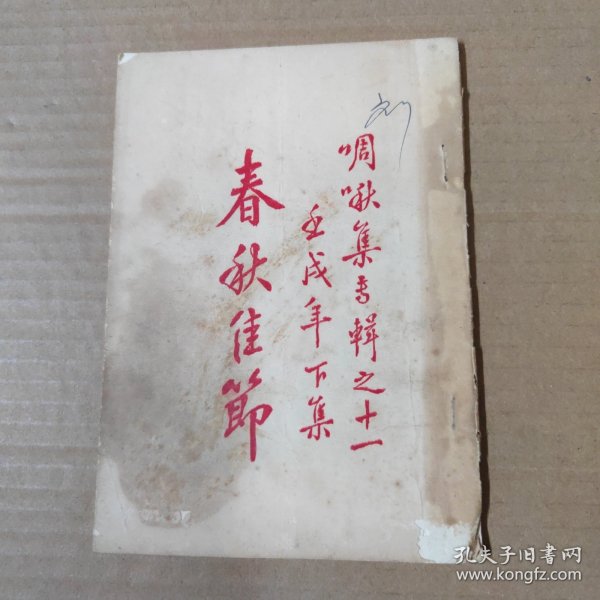 啁啾集专輯之十一
壬戌年下集
春秋佳節
刘
孔夫子旧書网
www.kongfz.com